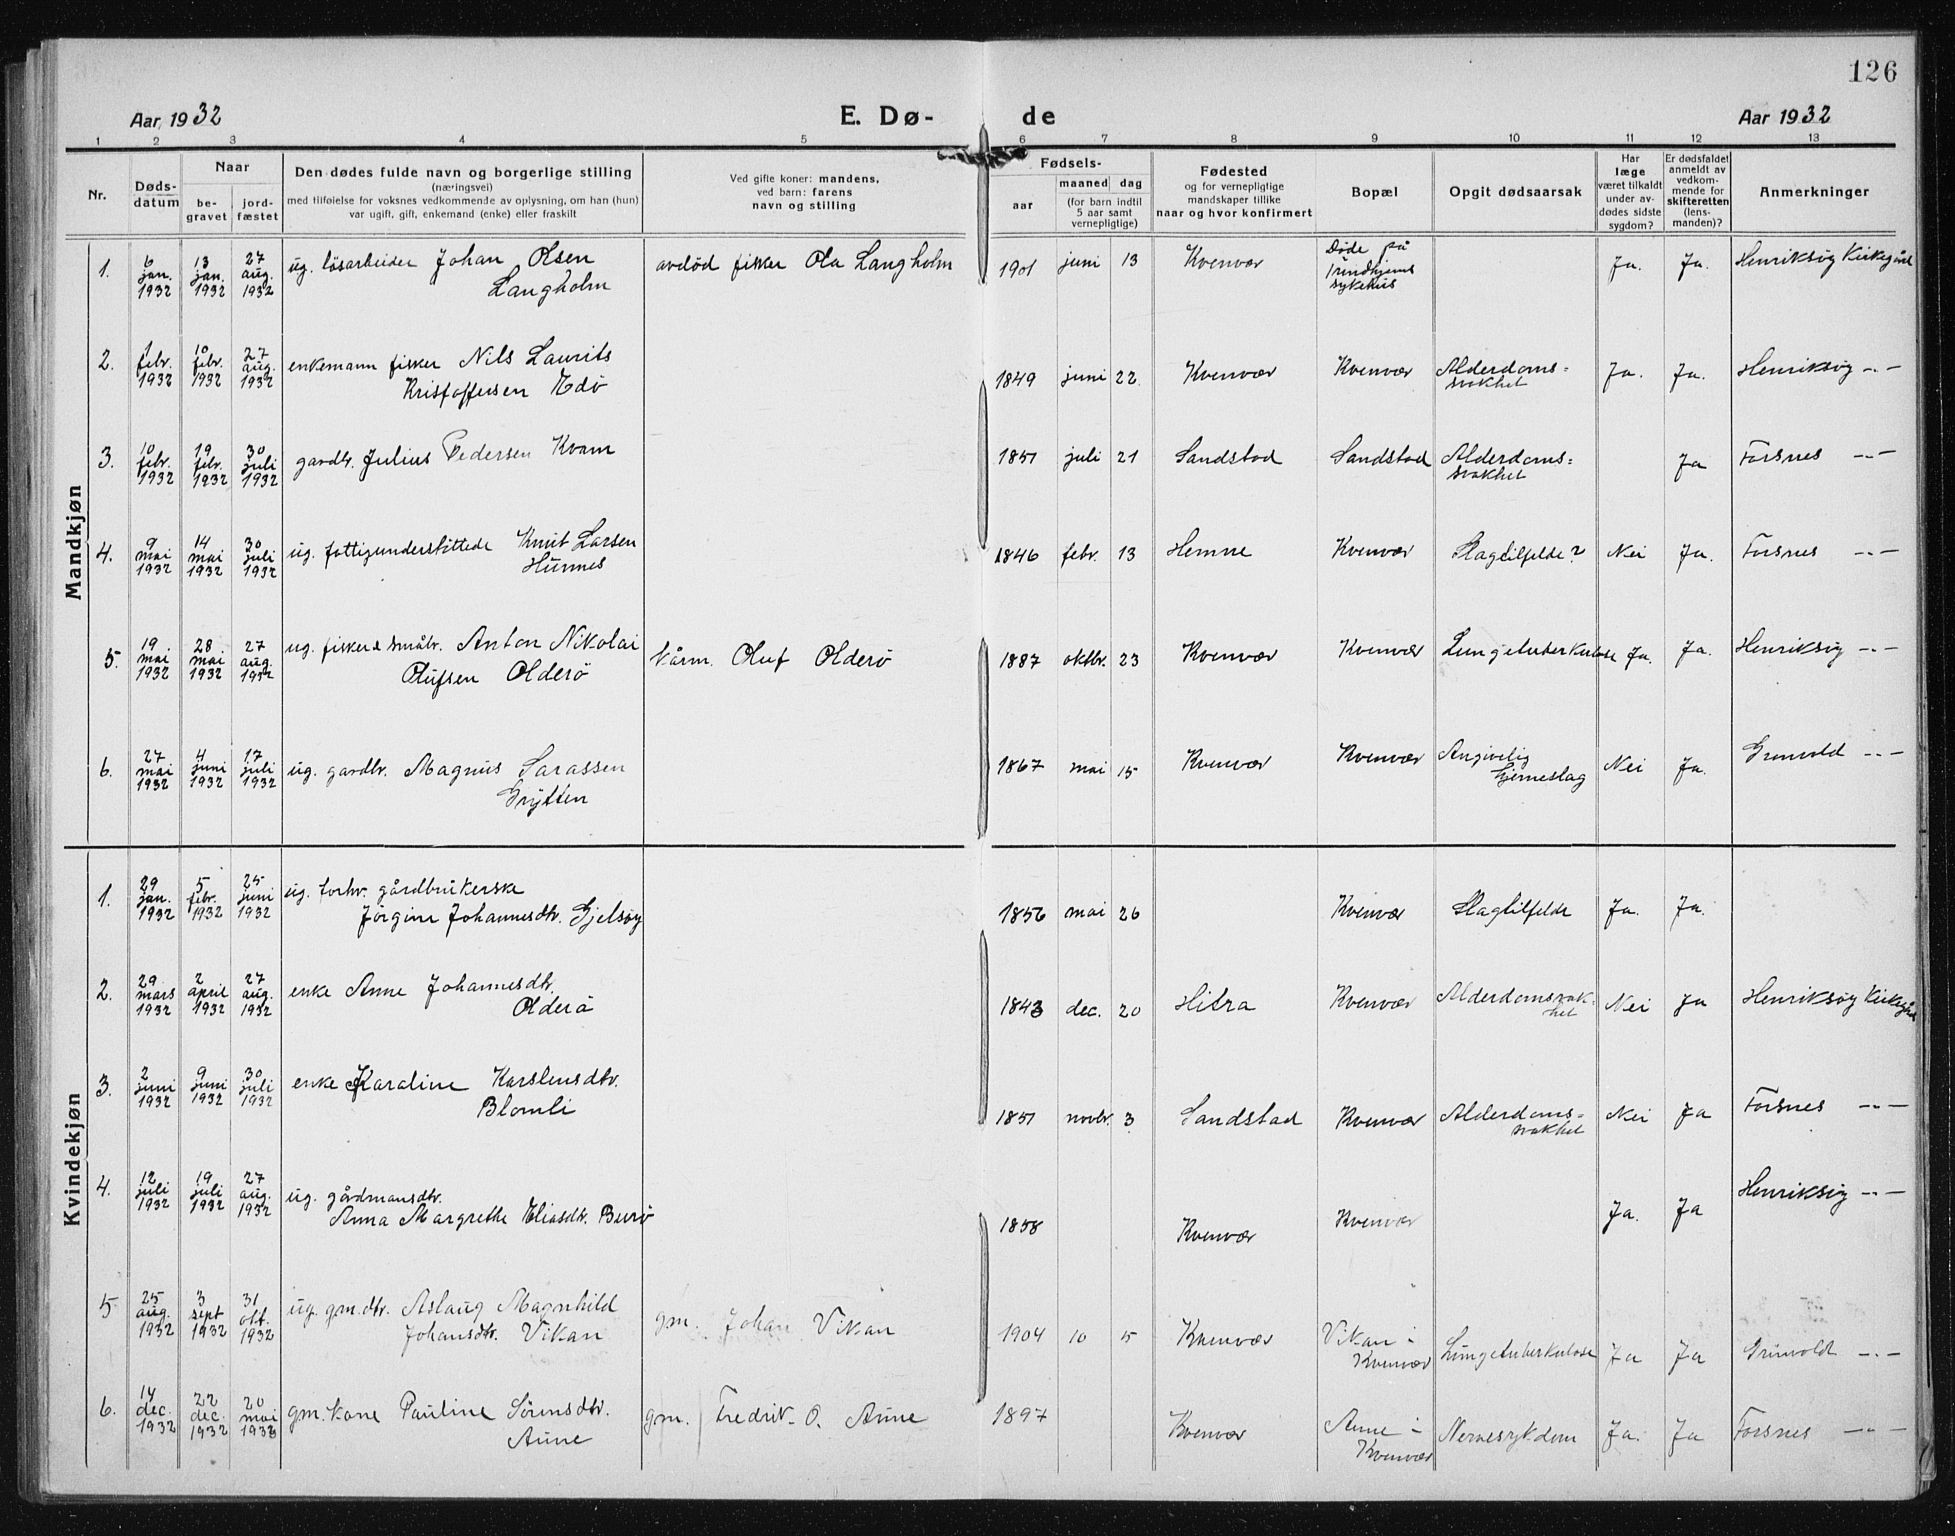 126
Aar 1932 E. Dø- de Aar 1932
1 2 3 4 5 6 7 8 9 10 11 12 13
Nr. Døds-datum Naar be-gravet jord-fæstet Den dødes fulde navn og borgerlige stilling (næringsvei) med tilføielse for voksnes vedkommende av oplysning, om han (hun) var ugift, gift, enkemand (enke) eller fraskilt Ved gifte koner: mandens, ved barn: farens navn og stilling Fødsels- aar maaned dag (for barn indtil 5 aar samt vernepligtige) Fødested og for vernepligtige mandskaper tillike naar og hvor konfirmert Bopæl Opgit dødsaarsak Har læge været tilkaldt under av-dødes sidste sygdom? Er dødsfaldet anmeldt av vedkom-mende for skifteretten (lens-manden)? Anmerkninger
Mandkjøn
1. 6 jan. 1932 13 jan. 1932 27 aug. 1932 ug. løsarbeider Johan Olsen Langholm avdød fisker Ola Langholm 1901 juni 13 Kvenvær Døde på Trondhjems sykehus Ja. Ja. Henriksøy Kirkegård
2. 1 febr. 1932 10 febr. 1932 27 aug. 1932 enkemann fisker Nils Laurits Kristoffersen Edø 1849 juni 22 Kvenvær Kvenvær Alderdoms= svakhet Ja. Ja. Henriksøy -"-
3. 10 febr. 1932 19 febr. 1932 30 juli 1932 gardbr. Julius Pedersen Kvam 1851 juli 21 Sandstad Sandstad Alderdoms= svakhet Ja Forsnes -"-
4. 9 mai 1932 14 mai 1932 30 juli 1932 ug. fattigunderstøttede Knut Larsen Hunnes 1846 febr. 13 Hemne Kvenvær Slagtilfelde? Nei Ja. Forsnes -"-
5. 19 mai 1932 28 mai 1932 27 aug. 1932 ug. fisker & småbr. Anton Nikolai Olufsen Olderø kårm. Oluf Olderø 1887 oktbr. 23 Kvenvær Kvenvær Lungetuberkulose Ja. Ja. Henriksøy -"-
6. 27 mai 1932 4 juni 1932 17 juli 1932 ug. gardbr. Magnus Larassen Grytten 1867 mai 15 Kvenvær Kvenvær Angivelig hjerneslag Nei Ja. Grimvold -"-
Kvindekjøn
1. 29 jan. 1932 5 febr. 1932 25 juni 1932 ug. forhv. gårdbrukerske Jørgine Johannesdtr. Gjelsøy 1856 mai 26 Kvenvær Slagtilfelde Ja. Ja.
2. 29 mars 1932 2 april 1932 27 aug. 1932 enke Anne Johannesdtr. Olderø 1843 dec. 20 Hitra Kvenvær Alderdomsvak-het Nei Ja Henriksøy Kirkegård
3. 2 juni 1932 9 juni 1932 30 juli 1932 enke Karoline Karstensdtr. Blomli 1851 novbr. 3 Sandstad Kvenvær Alderdoms= svakhet Nei Ja Forsnes -"-
4. 12 juli 1932 19 juli 1932 27 aug. 1932 ug. gårdmansdtr. Anna Margrethe Eliasdtr. Burø 1858 Kvenvær Kvenvær Ja. Ja Henriksøy -"-
5 25 aug. 1932 3 sept 1932 31 okt. 1932 ug. gm.dtr. Aslaug Magnhild Johansdtr. Vikan gm. Johan Vikan 1904 10 5 Kvenvær Vikan i Kvenvær Lungetuberkulose Ja Ja Grimvold -"-
6. 14 dec. 1932 22 dec. 1932 20 mai 1933 gm. kone Pauline Sørensdtr. Aune gm. Fredrik O. Aune 1897 Kvenvær Aune i Kvenvær Nervesykdom Ja. Ja Forsnes -"-